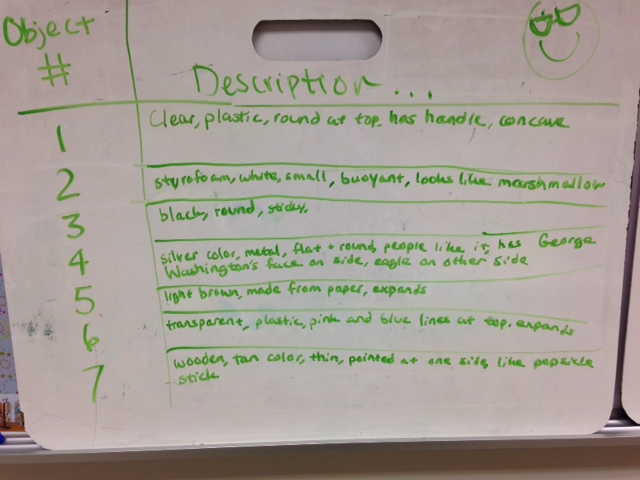 Object
#
Description...
1
Clear, plastic, round at top, has handle, concave
2
styrofoam, white, small, buoyant, looks like marshmallow
3
black, round, sticky.
4
silver color, metal, flat + round, people like it, has George
Washington's face on side, eagle on other side
5
light brown, made from paper, expands
6
transparent, plastic, pink and blue lines at top. expands
7
wooden, tan color, thin, pointed at one side, like popsicle
stick